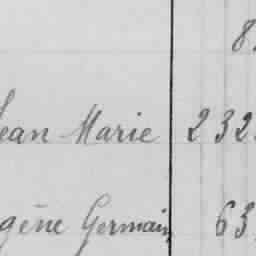 8
Jean Marie 232
gène Germain 63